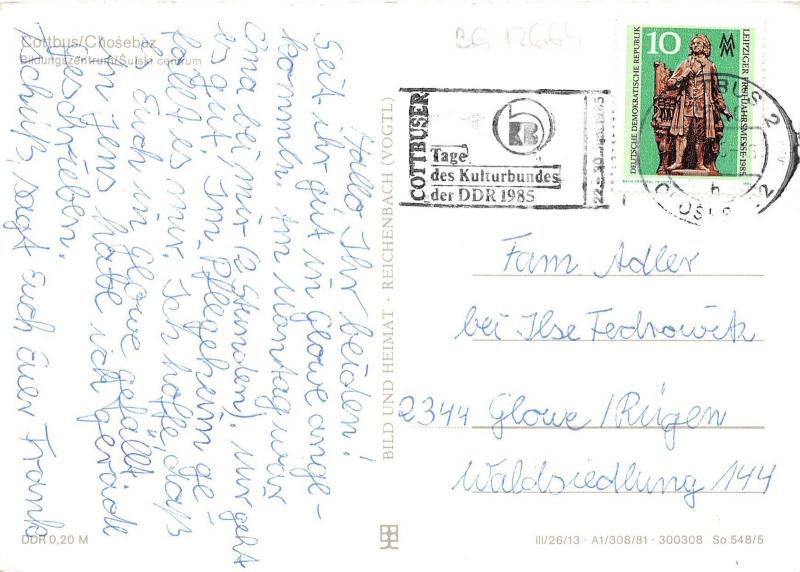 Cottbus/Chośebuz
Bildungszentrum/Šulski centrum
Hallo Ihr beiden!
Seit Ihr gut in Glowe ange-
kommen. Am Montag war
Oma bei mir (2 Stunden). Ihr geht
es gut. Im Pflegeheim ge-
fällt es mir. Ich hoffe, daß
es Euch in Glowe gefällt.
An Jens habe ich gerade
geschrieben.
Tschüß, sagt Euch Euer Frank
DDR 0,20 M
BILD UND HEIMAT · REICHENBACH (VOGTL)
BG 12664
COTTBUSER
KB
Tage
des Kulturbundes
der DDR 1985
10
DEUTSCHE DEMOKRATISCHE REPUBLIK
LEIPZIGER FRÜHJAHRSMESSE 1985
Fam Adler
bei Ilse Fedrowitz
2344 Glowe/Rügen
Waldsiedlung 144
III/26/13 · A1/308/81 · 300308 So 548/5